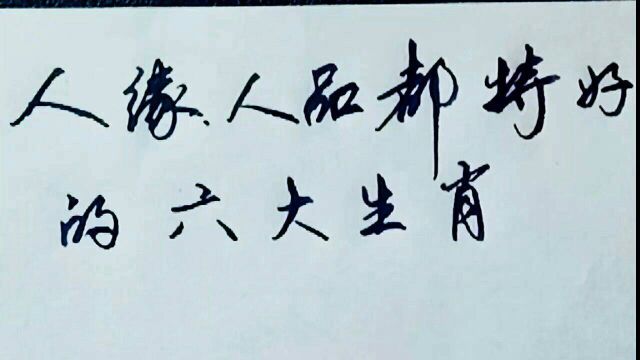 人缘、人品都特好
的六大生肖